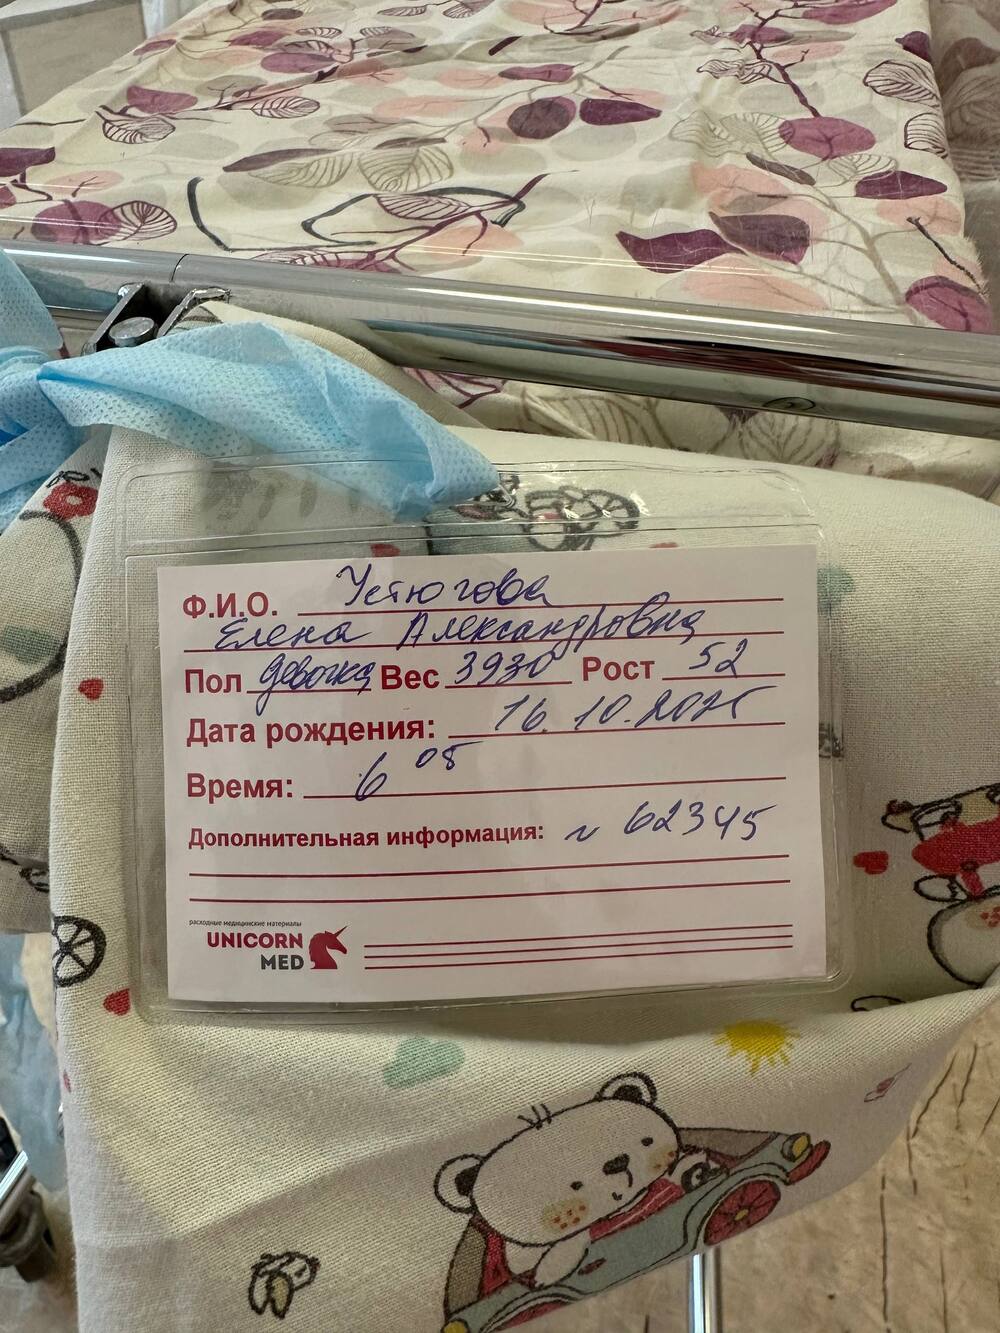 Ф.И.О. Устюгова
Елена Александровна
Пол девочка Вес 3930 Рост 52
Дата рождения: 16.10.2025
Время: 6 05
Дополнительная информация: 62345
расходные медицинские материалы
UNICORN
MED